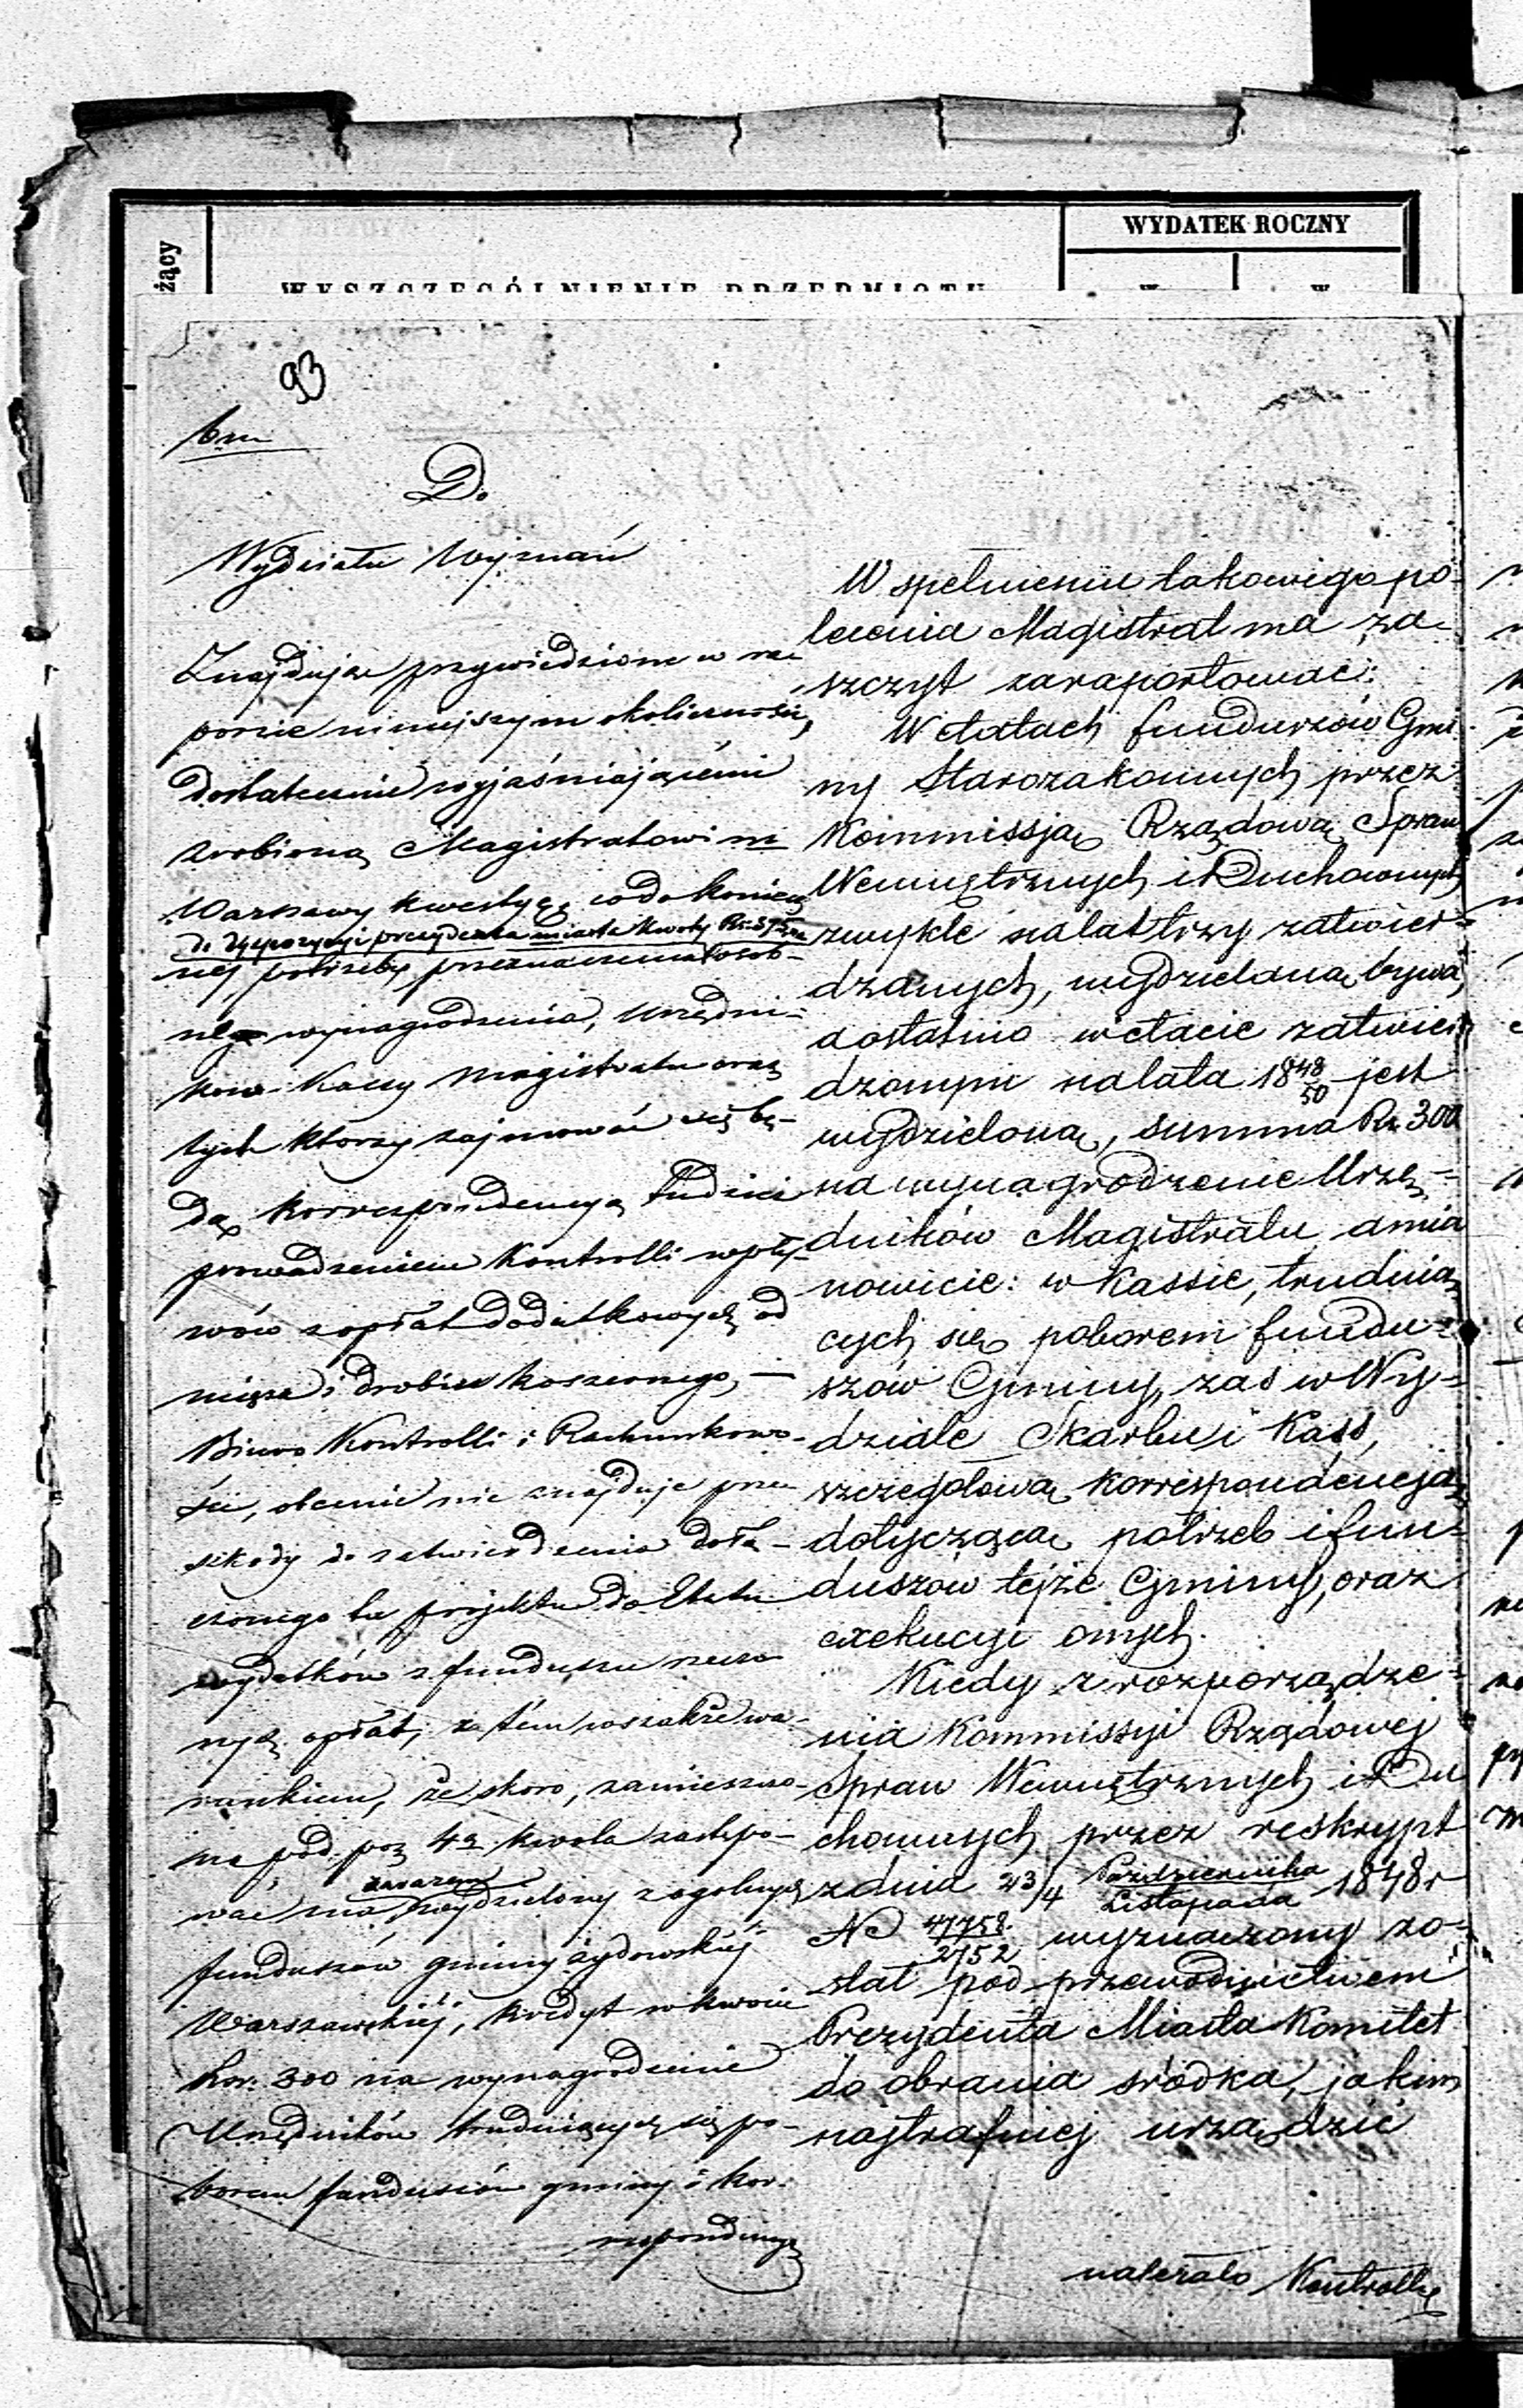 żący
WYSZCZEGÓLNIENIE PRZEDMIOTU
WYDATEK ROCZNY
W
W
93
Do
Wydziału Wyznań
Znajdując przywiedzione w ra-
porcie niniejszym okoliczności,
dostatecznie wyjaśniającemi
zrobioną Magistratowi m
Warszawy kwestyę, co do
do dyspozycyi prezydenta miasta kwoty Rs.
nej potrzeby przeznaczenia osob-
nego wynagrodzenia, Urzędni-
kom Kassy Magistratu oraz
tych którzy zajmować się bę-
dą korrespondencyą tudzież
prowadzeniem Kontrolli wpły-
wów z opłat dodatkowych od
mięsa i drobiu koszernego, —
Biuro Kontrolli i Rachunkowo-
ści, obecnie nie znajduje prze
szkody do zatwierdzenia dołą-
czonego tu projektu do Etatu
wydatków z funduszu
nych opłat, za tém wszakże wa-
runkiem, że skoro, zamieszczo-
na pod poz 4ą kwota zastępo-
wać ma zarazem wydzielony z ogolnych
funduszów gminy żydowskiéj
Warszawskiéj, kredyt w kwocie
Rsr. 300 na wynagrodzenie
Urzędników trudniących się po-
borem funduszów gminy i kor-
respondencyą
W spełnieniu takowego po-
lecenia Magistrat ma za-
szczyt zaraportować:
W etatach funduszów Gmi-
ny Starozakonnych przez
Kommissją Rządową Spraw
Wewnętrznych i Duchownych
zwykle na lat trzy zatwier-
dzanych, wydzielaną bywa,
a ostatnio w etacie zatwier
dzonym na lata 1848/50 jest
wydzieloną, summa Rs. 300
na wynagrodzenie Urzę-
dników Magistratu a mia
nowicie: w Kassie, trudnią
cych się poborem fundu-
szów Gminy, zaś w Wy-
dziale Skarbu i Kass,
szczegółową korrespondencją
dotyczącą potrzeb i fun-
duszów tejże Gminy, oraz
exekucyi onych.
Kiedy z rozporządze-
nia Kommissyi Rządowej
Spraw Wewnętrznych i Du
chownych przez reskrypt
z dnia 23/4 Października/Listopada 1848 r
No 47758/2752 wyznaczony zo-
stał pod przewodnictwem
Prezydenta Miasta Komitet
do obrania środka, jakim
najtrafniej urządzić
należało Kontrollę